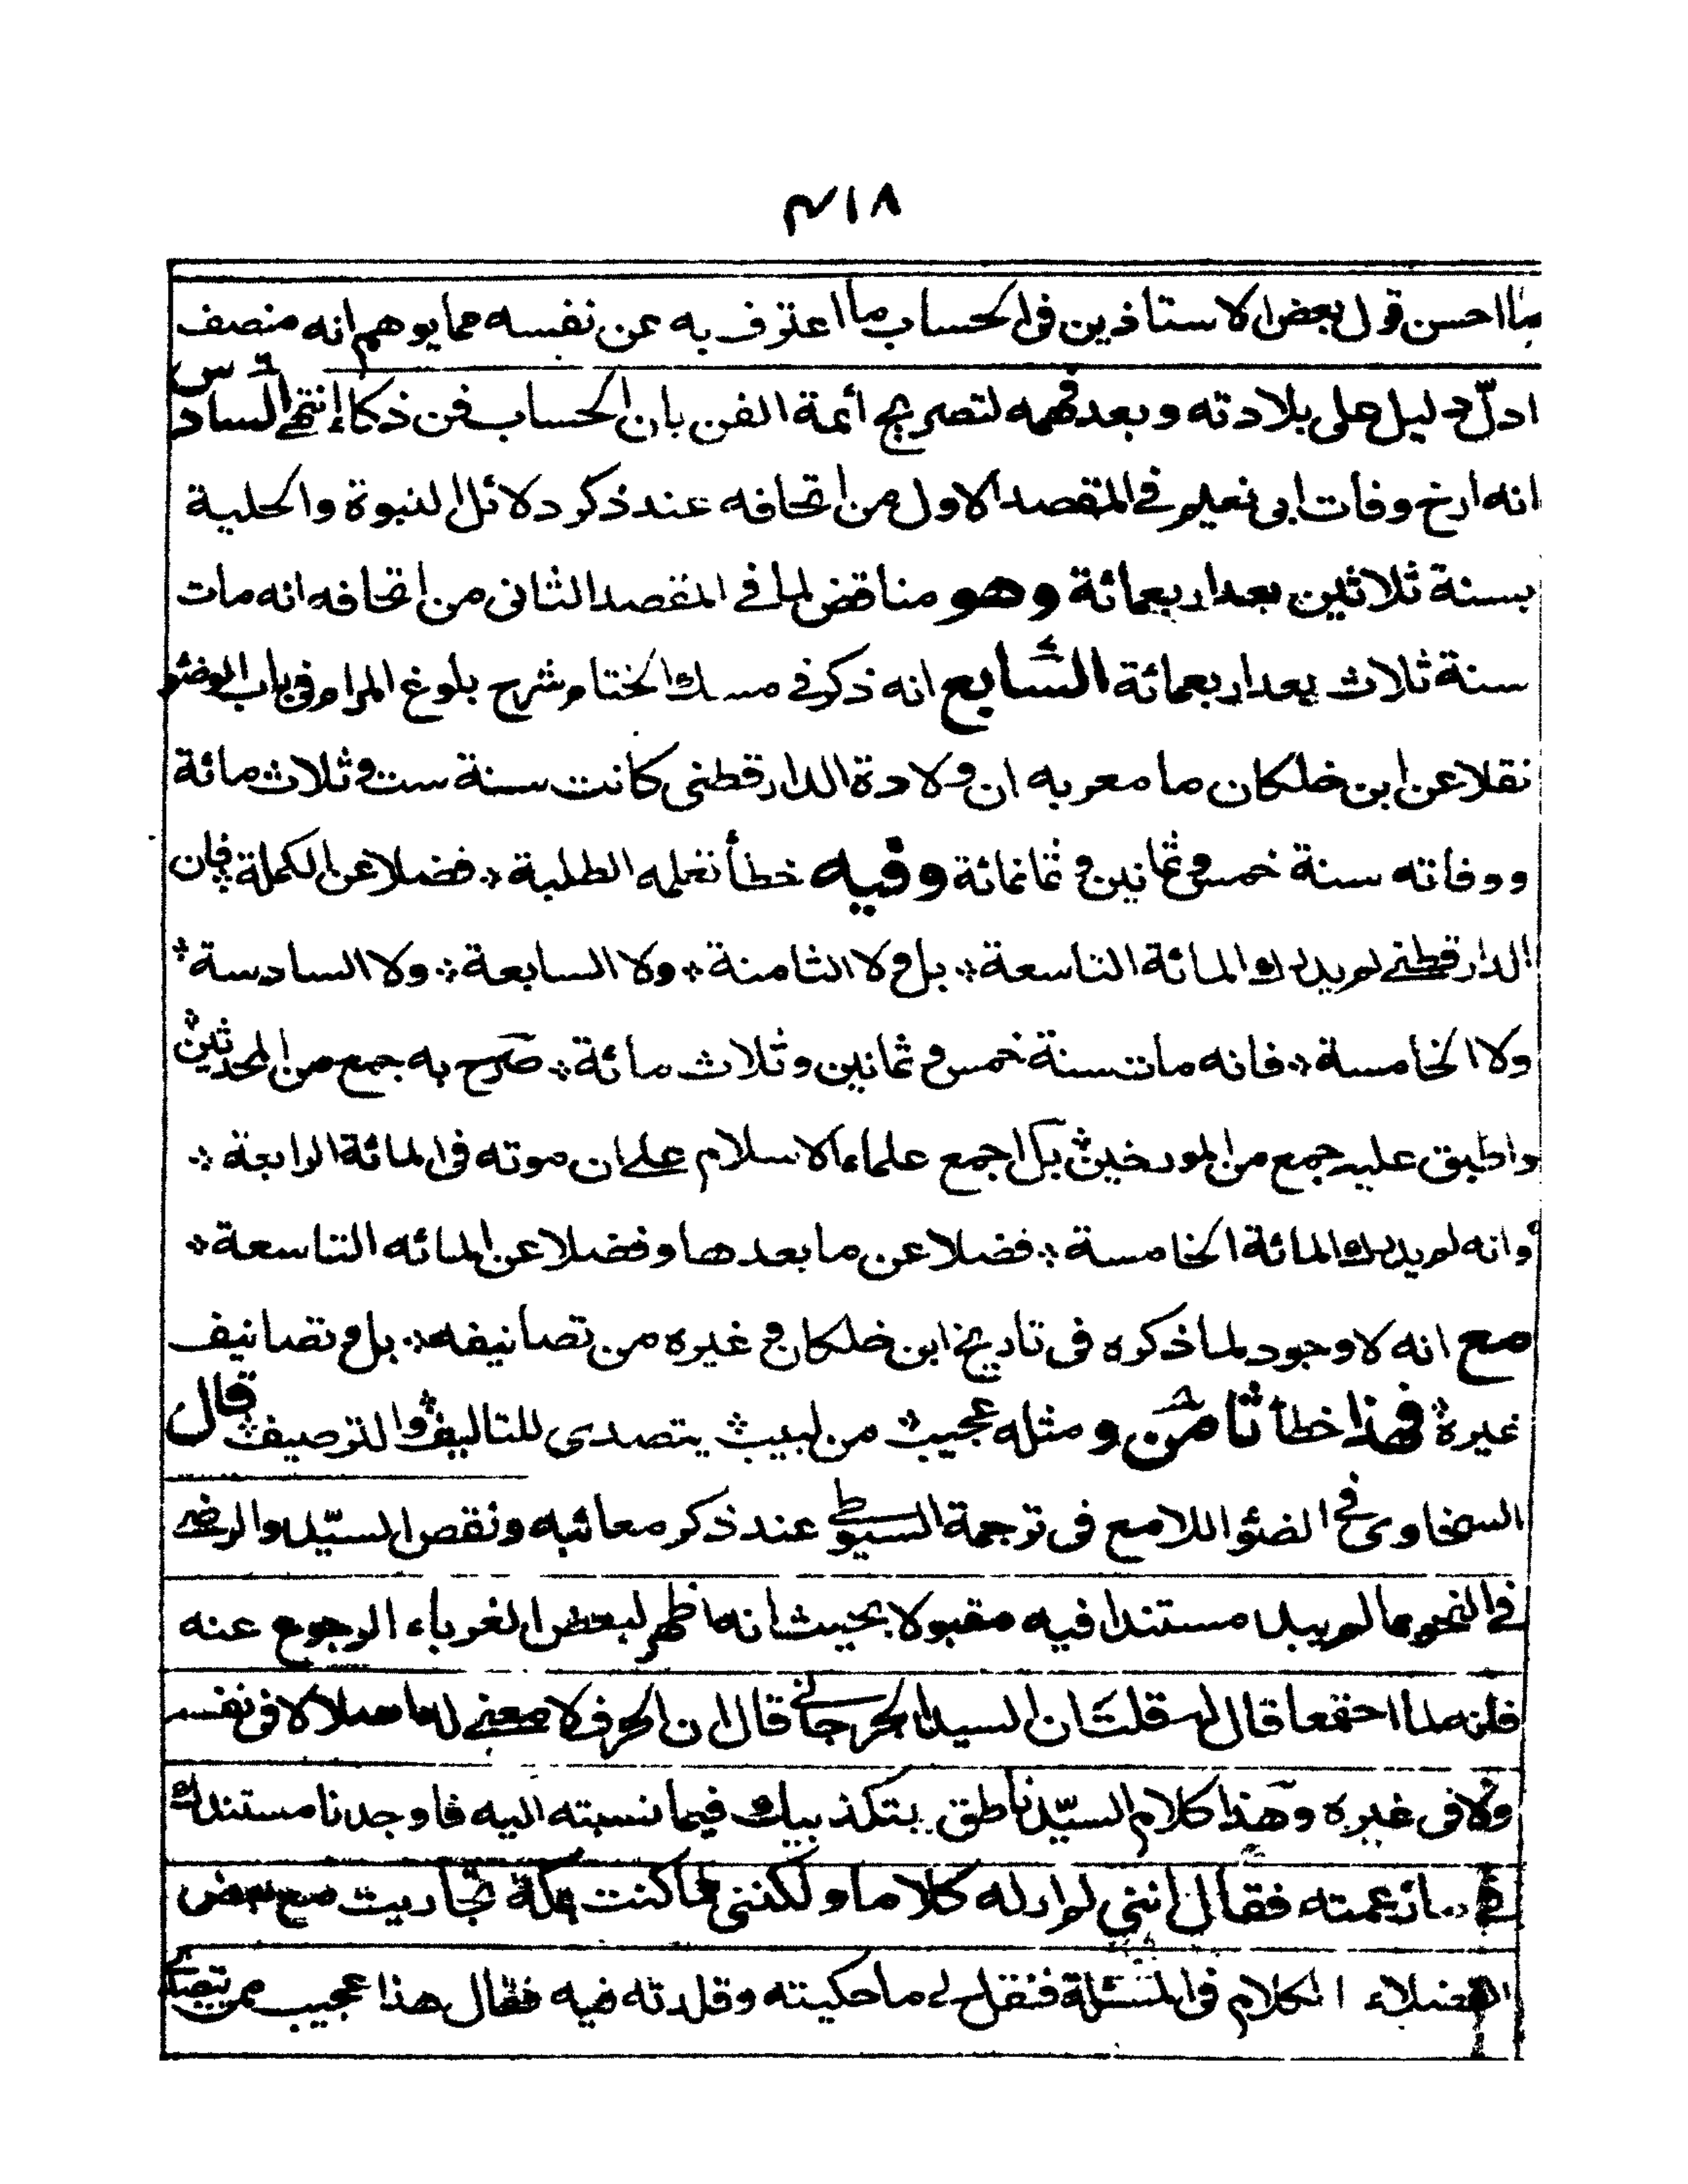 ٣١٨
ما احسن قول بعض الاستاذين فى الحساب ما اعترف به عن نفسه مما يوهم انه منصف
ادلّ دليل على بلادته وبعد فهمه لتصريح أئمة الفن بان الحساب فن ذكاء انتهى السادس
انه ارخ وفات ابى نعيم في المقصد الاول من اتحافه عند ذكر دلائل النبوة والحلية
بسنة ثلاثين بعد اربعمائة وهو مناقض لما في المقصد الثانى من اتحافه انه مات
سنة ثلاث بعد اربعمائة السّابع انه ذكر في مسك الختام شرح بلوغ المرام فى باب الوضئو
نقلا عن ابن خلكان ما معربه ان ولادة الدارقطنى كانت سنة ست و ثلاث مائة
ووفاته سنة خمس و ثمانين و ثمانمائة وفيه خطأ تعلمه الطلبة ۞ فضلا عن الكملة ۞ فان
الدارقطنے لم يدرك المائة التاسعة ۞ بل ولا الثامنة ۞ ولا السابعة ۞ ولا السادسة ۞
ولا الخامسة ۞ فانه مات سنة خمس و ثمانين و ثلاث مائة ۞ صَرح به جمع من المحدثين ۞
واطبق عليه جمع من المورخين ۞ بل اجمع علماء الاسلام على ان موته فى المائة الرابعة ۞
وانه لم يدرك المائة الخامسة ۞ فضلا عن ما بعدها وفضلا عن المائه التاسعة ۞
مع انه لا وجود لما ذكره فى تاريخ ابن خلكان و غيره من تصانيفه ۞ بل و تصانيف
غيرة ۞ فهذا خطأ ثامَن و مثله عجيب ۞ من لبيب ۞ يتصدى للتاليف ۞ والترصيف ۞ قال
السخاوى في الضئو اللامع فى ترجمة السيوطے عند ذكر معائبه ونقص السيّد والرضے
في النحو مما لم يبد مستندا فيه مقبولا بحيث انه ما ظهر لبعض الغرباء الرجوع عنه
فانه لما اجتمعا قال له قلتَ ان السيد الجرجانے قال ان الحرف لا معنے له اصلا لا فى نفسه
ولا فى غيره وهَذا كلام السيّد ناطق بتكذيبك فيما نسبته اليه فاوجدنا مستندك
في ما زعمته فقال اننى لم ار له كلاما ولكننى لما كنت بمكة تجاريت مع بعض
الفضلاء الكلام فى المسئلة فنقل لے ما حكيته وقلدته فيه فقال هذا عجيب ممن